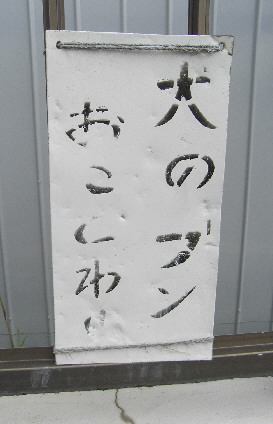 犬のフン
おことわり